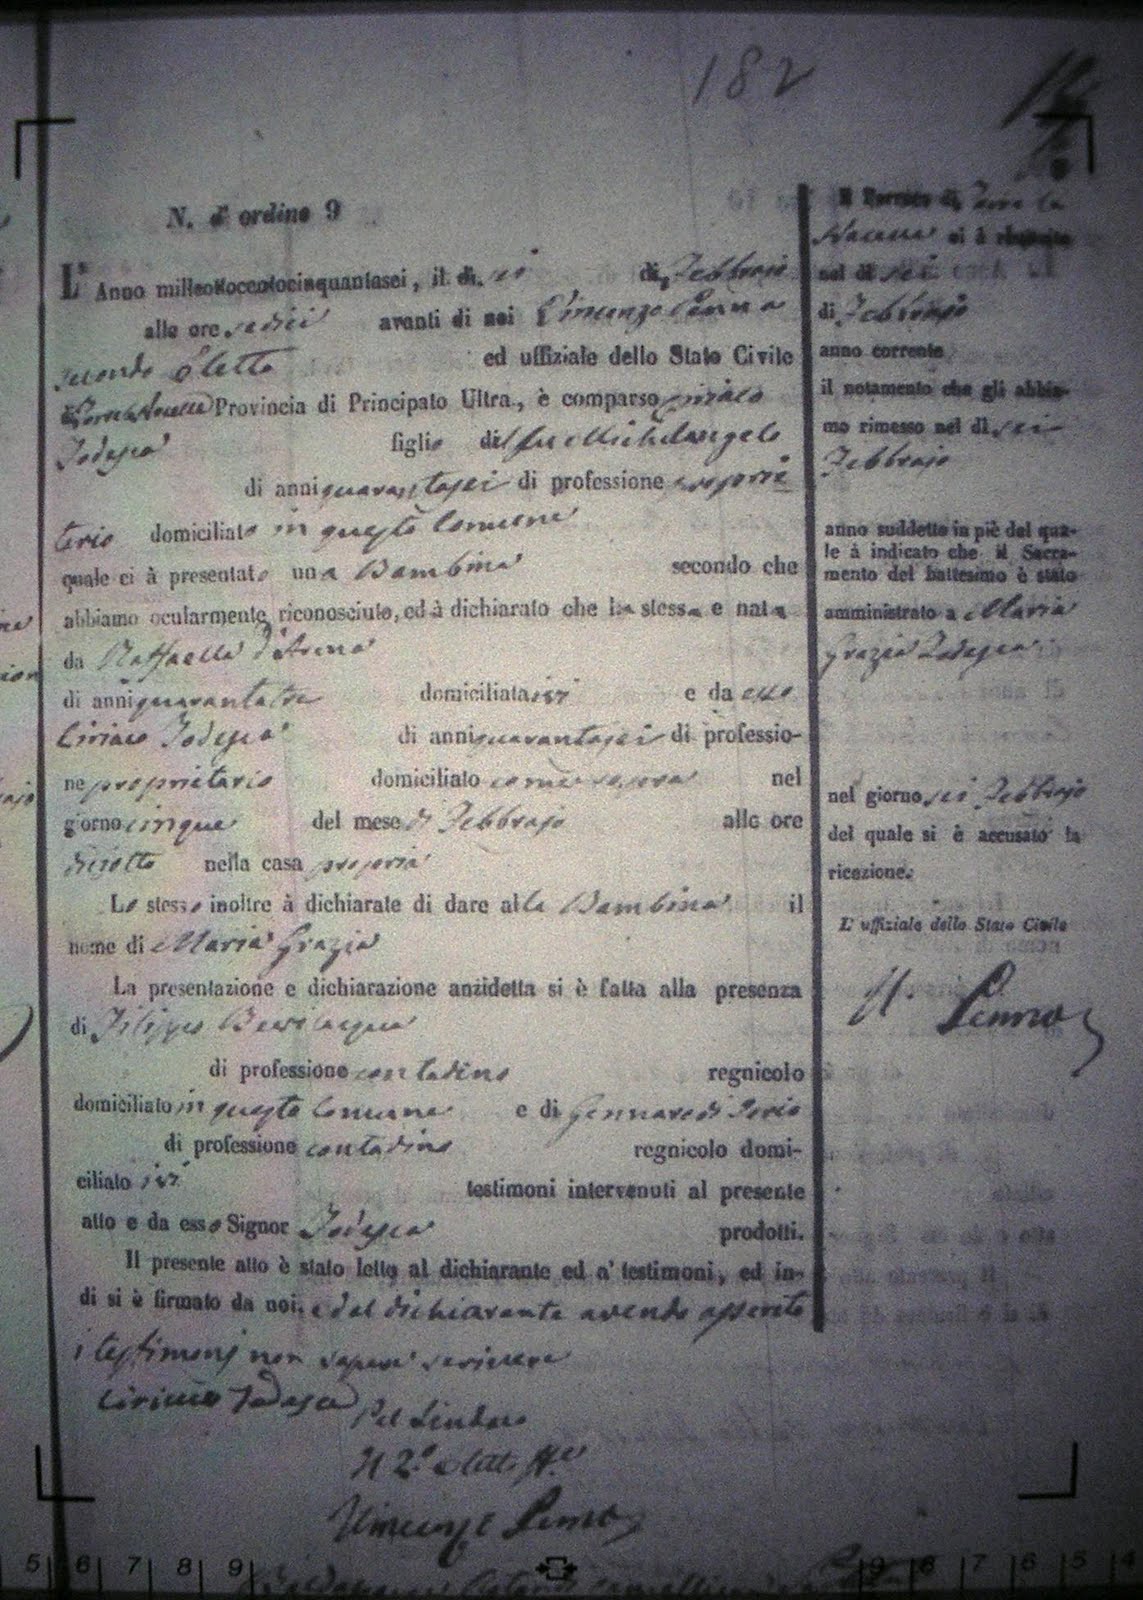 182
N. d' ordine 9
L' Anno milleottocentocinquantasei, il di sei di Febbrajo
alle ore sedici avanti di noi Vincenzo Penna
secondo Eletto ed uffiziale dello Stato Civile
di Provincia di Principato Ultra., è comparso Ciriaco
Todesca figlio del fu Michelangelo
di anni quarantasei di professione proprie
tario domiciliato in questo Comune
quale ci à presentato una Bambina secondo che
abbiamo ocularmente riconosciuto, ed à dichiarato che la stessa e nata
da Raffaella d'
di anni quarantatre domiciliata ivi e da esso
Ciriaco Todesca di anni quarantasei di professio-
ne proprietario domiciliato come sopra nel
giorno cinque del mese di Febbrajo alle ore
diciotto nella casa propria
Lo stesso inoltre à dichiarato di dare alla Bambina il
nome di Maria Grazia
La presentazione e dichiarazione anzidetta si è fatta alla presenza
di Filippo Bevilacqua
di professione contadino regnicolo
domiciliato in questo Comune e di Gennaro di Iorio
di professione contadino regnicolo domi-
ciliato ivi testimoni intervenuti al presente
atto e da esso Signor Todesca prodotti.
Il presente atto è stato letto al dichiarante ed a' testimoni, ed in-
di si è firmato da noi, e dal dichiarante avendo asserito
i testimonj non sapere scrivere
Ciriaco Todesca
Pel Sindaco
Il 2.° Eletto
Vincenzo Penna
Il Parroco di Torre le
Nocelle ci à rimesso
nel di sei
di Febbrajo
anno corrente
il notamento che gli abbia-
mo rimesso nel di sei
Febbrajo
anno suddetto in piè del qua-
le à indicato che il Sacra-
mento del battesimo è stato
amministrato a Maria
Grazia Todesca
nel giorno sei Febbrajo
del quale si è accusato la
ricezione.
L' uffiziale dello Stato Civile
Penna
5 6 7 8 9
9 8 7 6 5 4